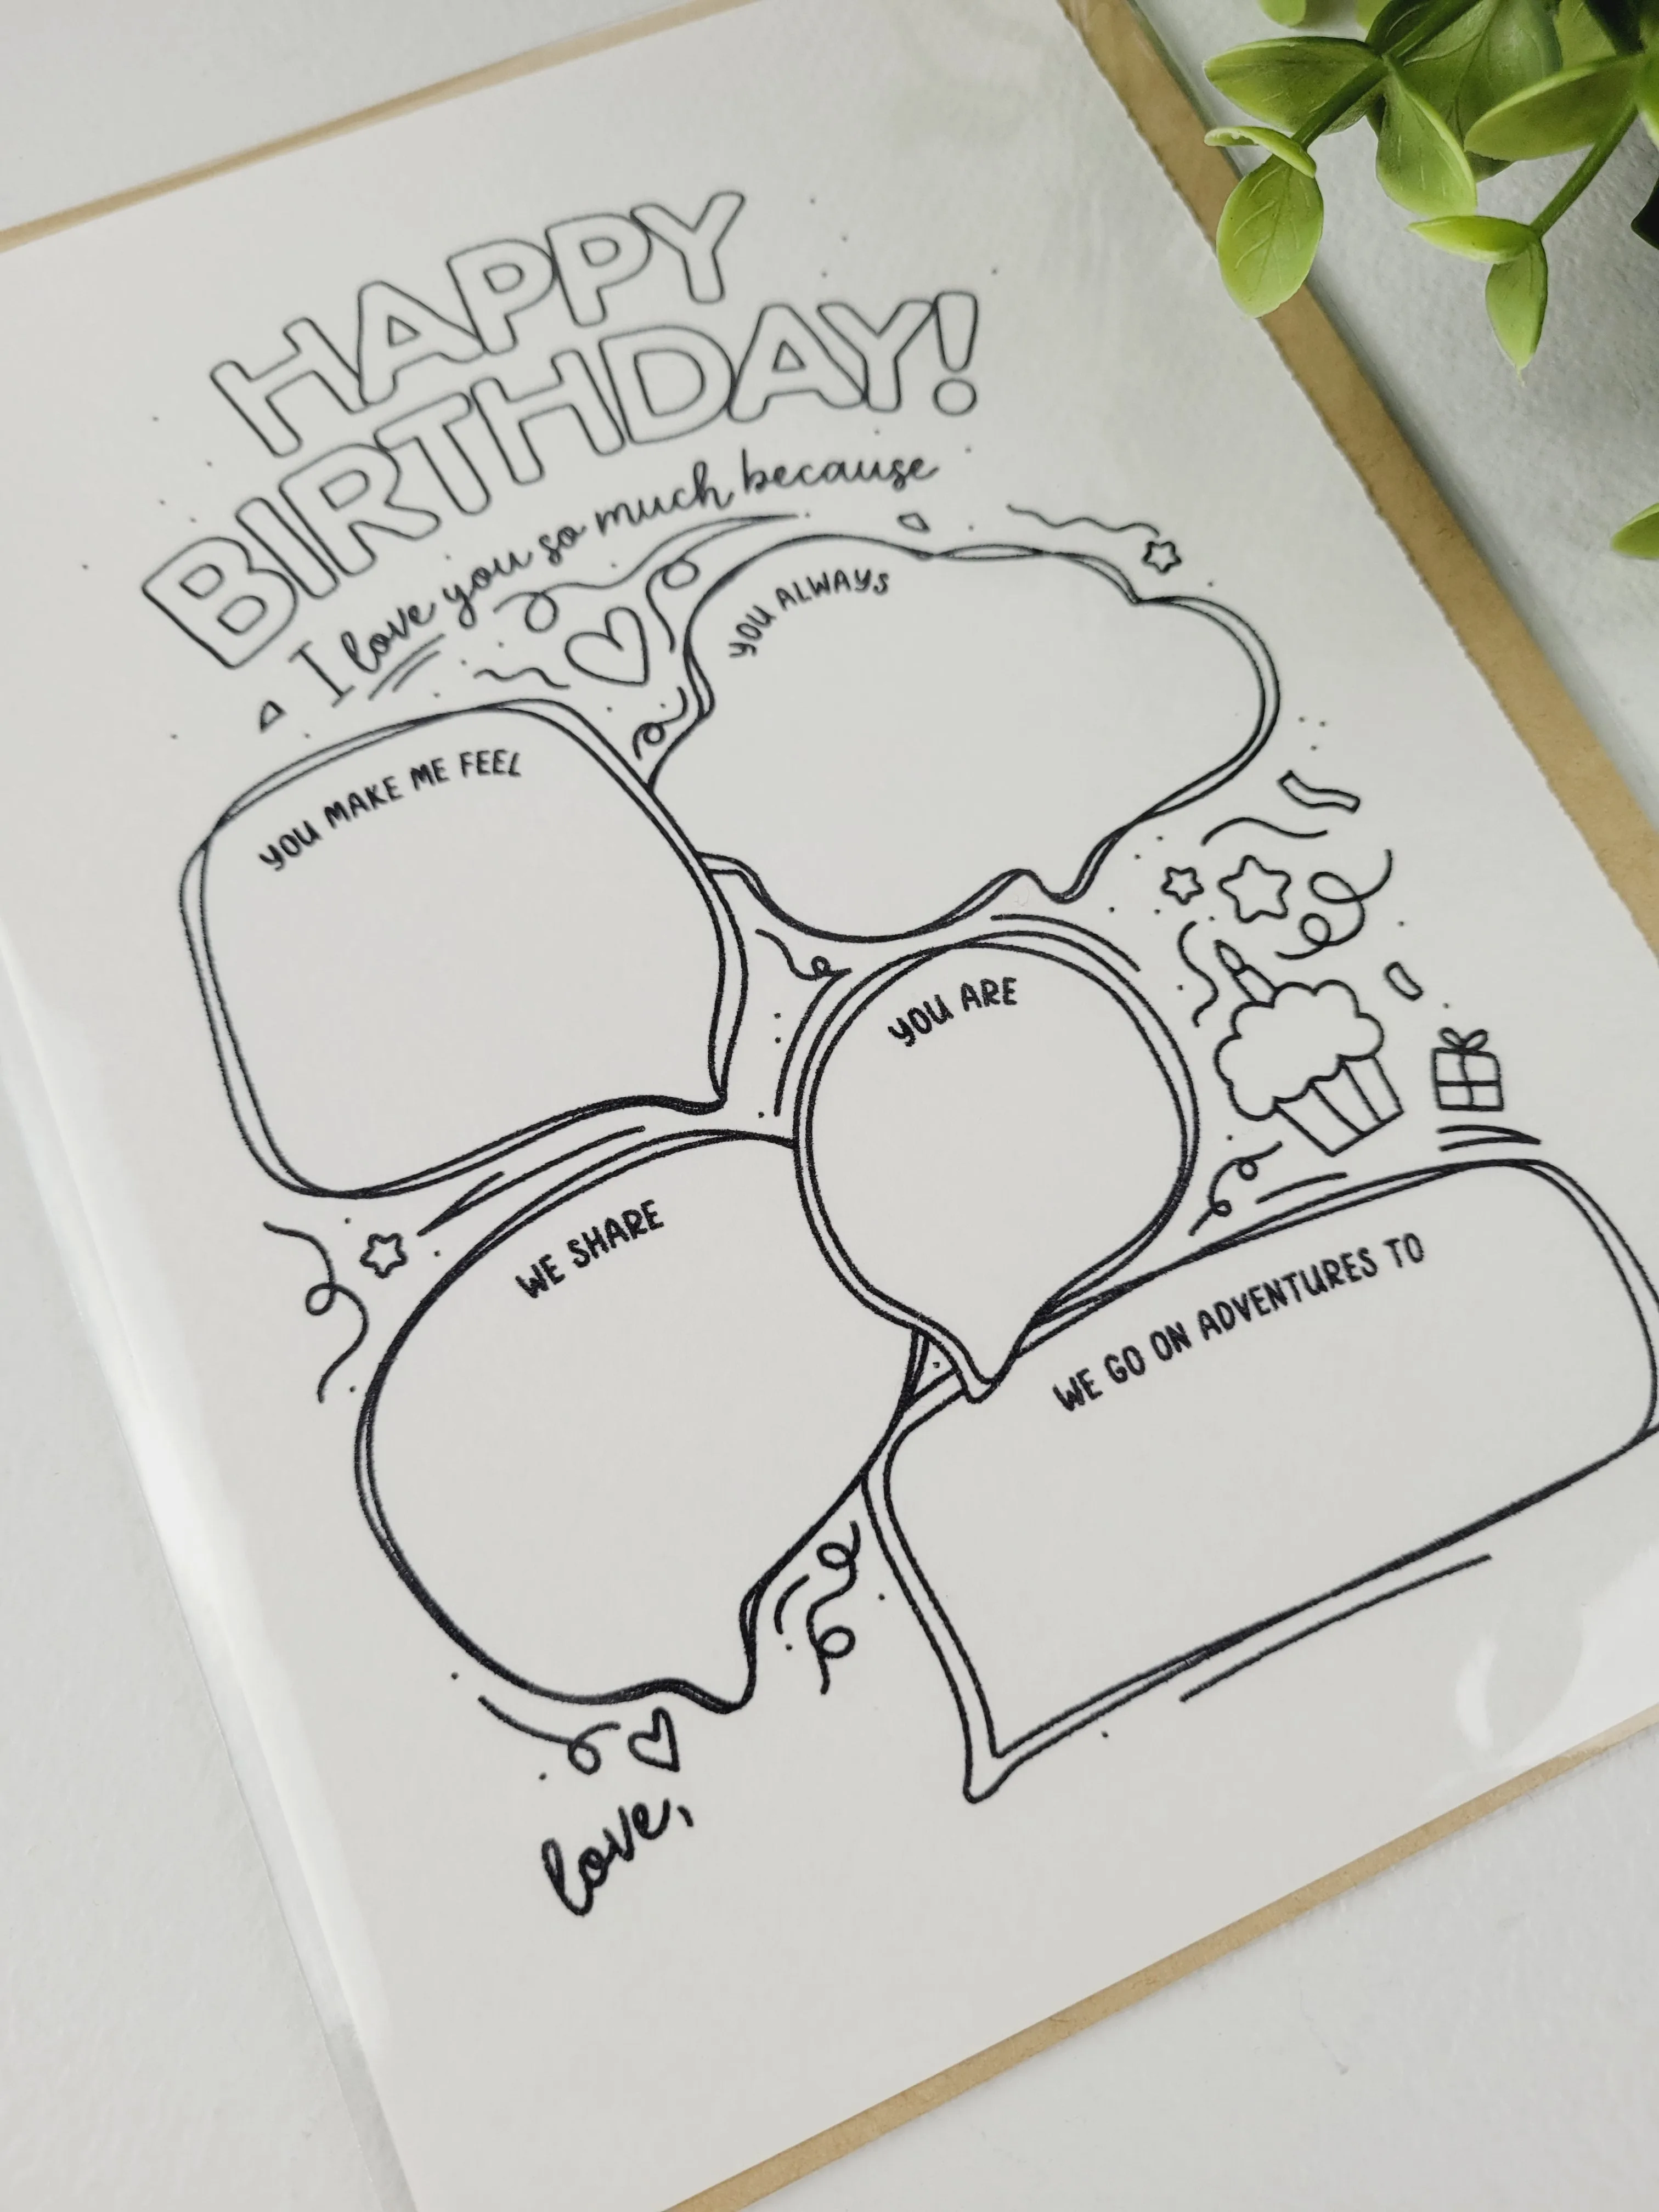 HAPPY
BIRTHDAY!
I love you so much because
YOU ALWAYS
YOU MAKE ME FEEL
YOU ARE
WE SHARE
WE GO ON ADVENTURES TO
love,